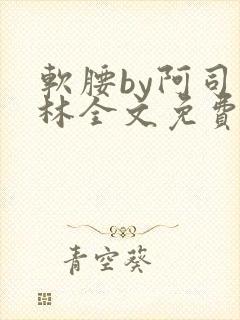 軟腰by阿司
林全文免費
青空葵